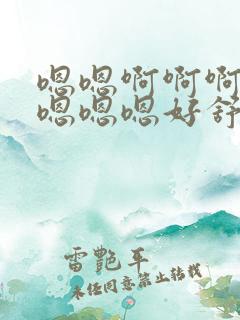 嗯嗯啊啊啊
嗯嗯嗯好舒
雷艷平
未经同意禁止转载